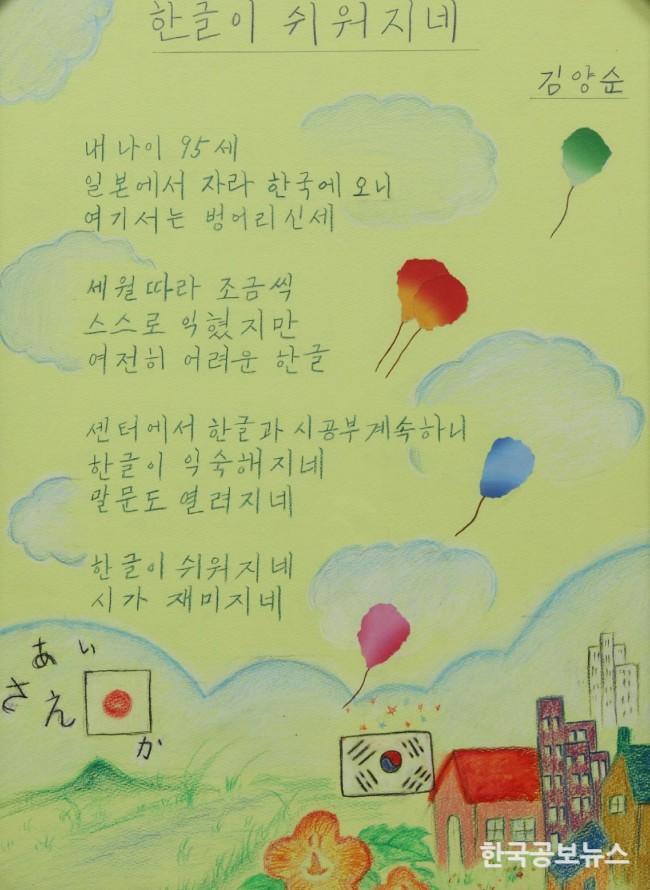 한글이 쉬워지네
김양순
내 나이 95세
일본에서 자라 한국에 오니
여기서는 벙어리신세
세월따라 조금씩
스스로 익혔지만
여전히 어려운 한글
센터에서 한글과 시공부계속하니
한글이 익숙해지네
말문도 열려지네
한글이 쉬워지네
시가 재미지네
あい
さえ
か
한국공보뉴스